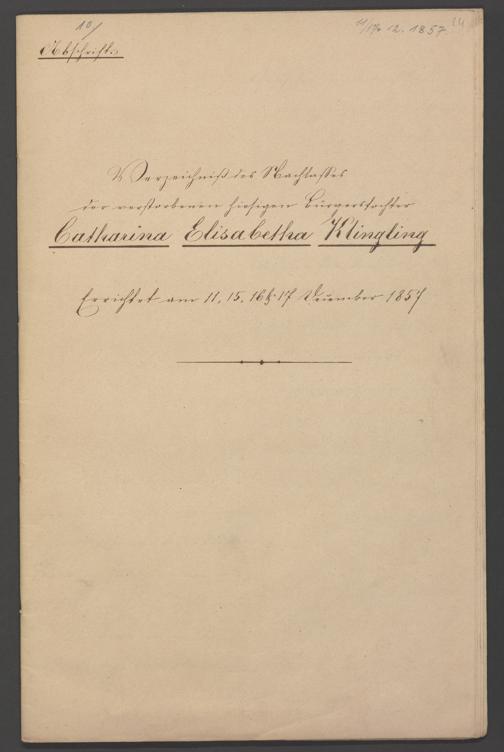 10/
11/17 12. 1857 24
Abschrift.
Verzeichniß des Nachlasses
der verstorbenen hiesigen Bürgerstochter
Catharina Elisabetha Klingling
Errichtet am 11, 15, 16 & 17 December 1857